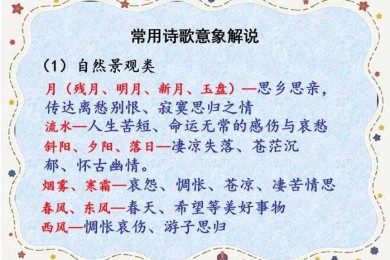 常用诗歌意象解说
(1) 自然景观类
月（残月、明月、新月、玉盘）—思乡思亲，
传达离愁别恨、寂寞思归之情
流水—人生苦短、命运无常的感伤与哀愁
斜阳、夕阳、落日—凄凉失落、苍茫沉
郁、怀古幽情。
烟雾、寒霜—哀怨、惆怅、苍凉、凄苦情思
春风、东风—春天、希望等美好事物
西风—惆怅哀伤、游子思归